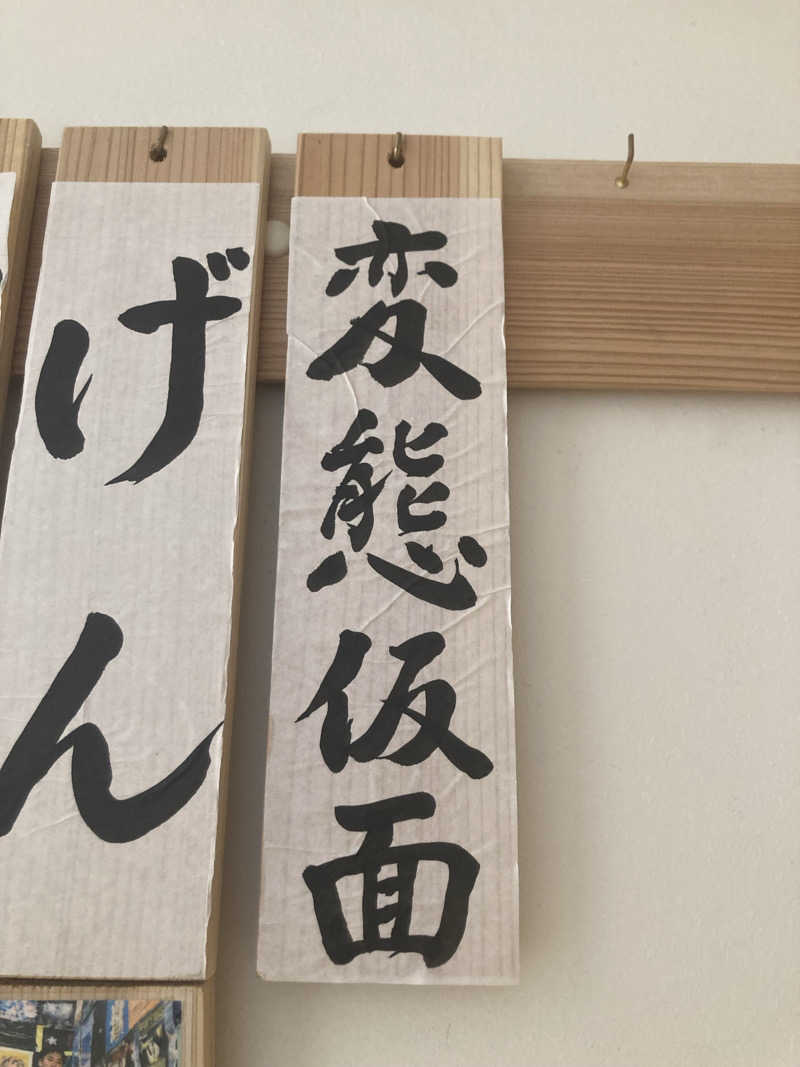 変態仮面
げん